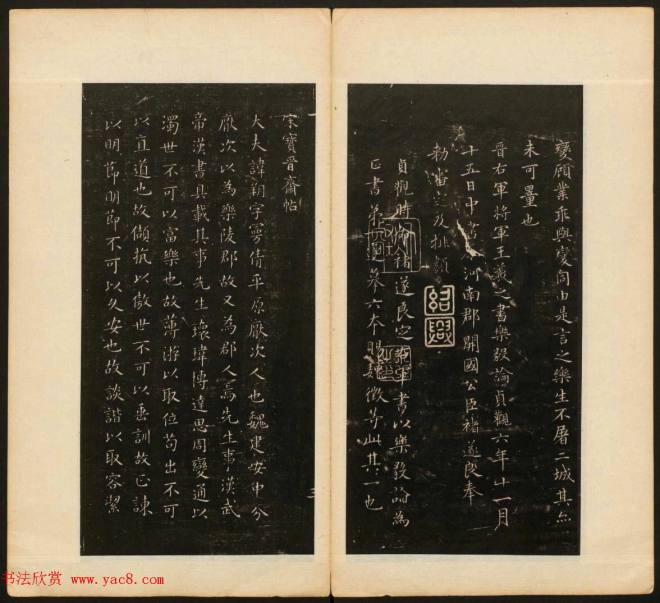 變願業乖與變同由是言之樂生不屠二城其
未可量也
晉右軍將軍王羲之書樂毅論貞觀六年十一月
十五日中 河南郡開國公臣褚遂良奉
勅審定及排類
紹興
貞觀時 褚遂良定 右軍書以樂毅論為
正書第 摹六本賜魏徵等此其一也
宋寶晉齋帖
大夫諱朔字曼倩平原厭次人也魏建安中分
厭次以為樂陵郡故又為郡人焉先生事漢武
帝漢書具載其事先生瓌瑋博達思周變通以
濁世不可以富樂也故薄游以取位苟出不可
以直道也故傲抗以儆世不可以垂訓故正諫
以明節明節不可以久安也故談諧以取容潔
书法欣赏 www.yac8.com